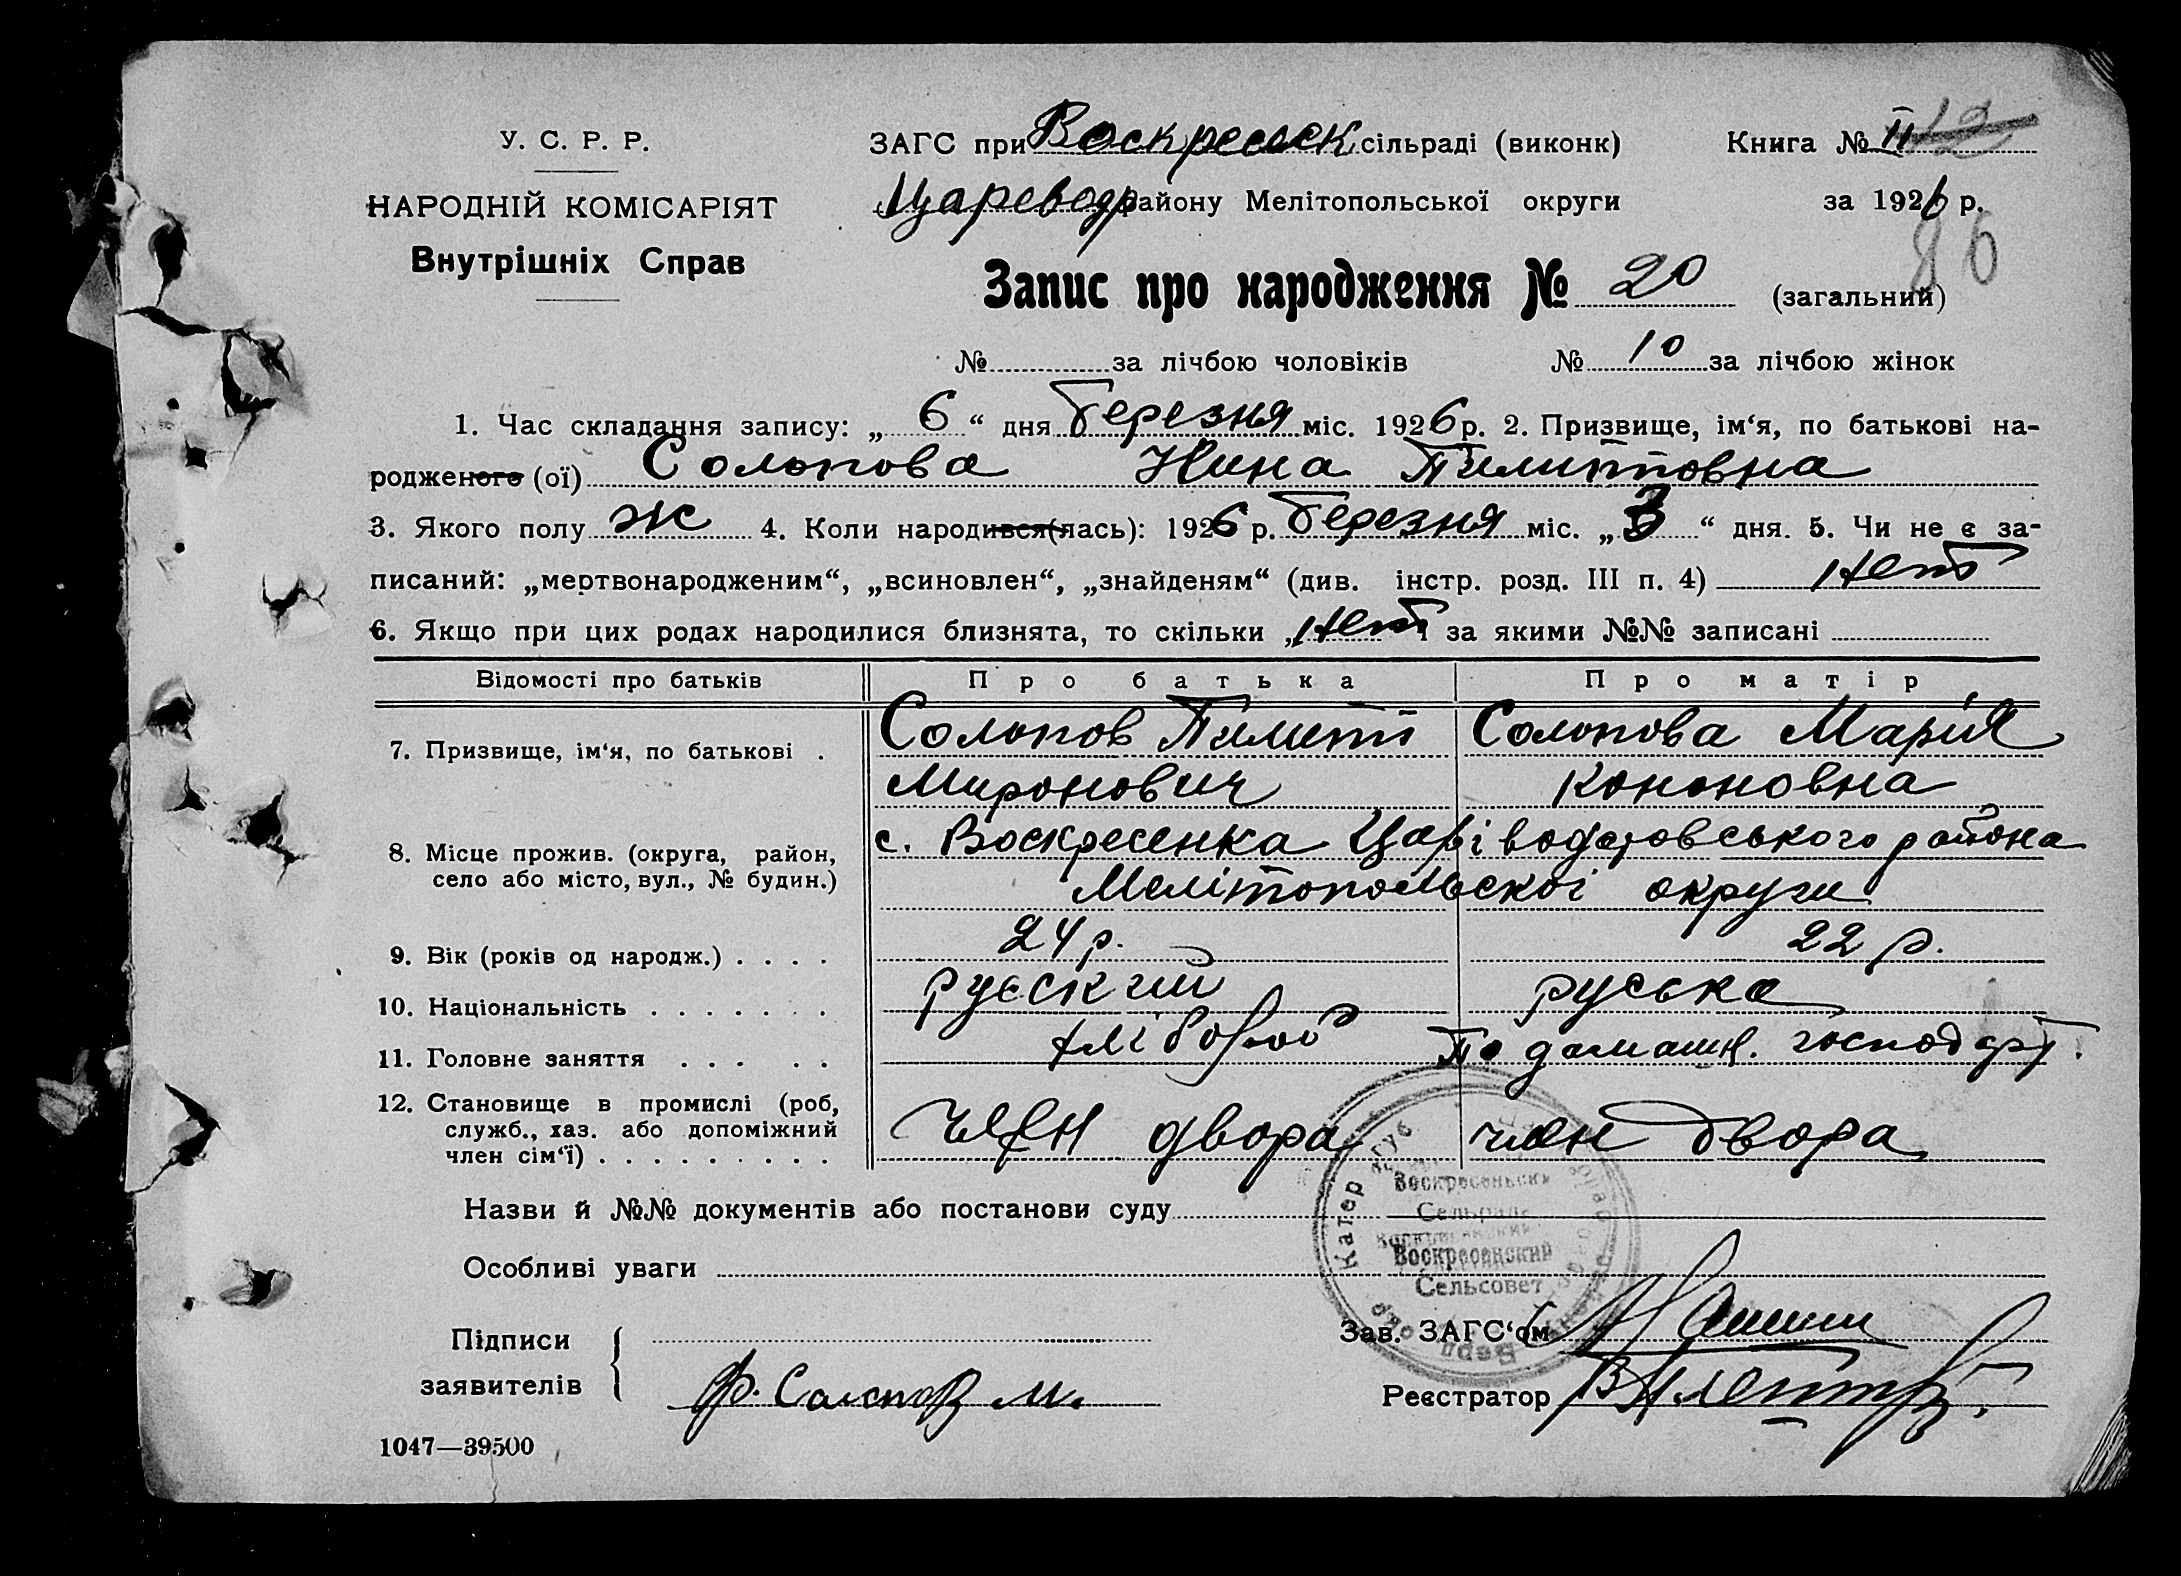 У. С. Р. Р.
НАРОДНІЙ КОМІСАРІЯТ
Внутрішніх Справ
ЗАГС при Воскресенск сільраді (виконк)
Книга № II 12
Цареводр району Мелітопольської округи
за 1926 р.
86
Запис про народження № 20 (загальний)
№ за лічбою чоловіків № 10 за лічбою жінок
1. Час складання запису: „ 6 “ дня березня міс. 1926 р. 2. Призвище, ім‘я, по батькові на-
родженого (ої) Солопова Нина Пилиповна
3. Якого полу ж 4. Коли народився(лась): 1926 р. березня міс. „ 3 “ дня. 5. Чи не є за-
писаний: „мертвонародженим“, „всиновлен“, „знайденям“ (див. інстр. розд. III п. 4) нет
6. Якщо при цих родах народилися близнята, то скільки „ нет і за якими №№ записані
Відомості про батьків Про батька Про матір
7. Призвище, ім‘я, по батькові .
Солопов Пилип Солопова Марія
Миронович Кононовна
8. Місце прожив. (округа, район,
село або місто, вул., № будин.)
с. Воскресенка Царіводаровського района
Мелітопольскої округи
9. Вік (років од народж.) . . . . 24 р. 22 р.
10. Національність . . . . . . . русский руська
11. Головне заняття . . . . . хлібороб По домашн. господарт.
12. Становище в промислі (роб,
служб., хаз. або допоміжний
член сім‘ї) . . . . . . . . . член двора член двора
Назви й №№ документів або постанови суду
Особливі уваги
Воскресенський
Сельрада
Воскресенский
Сельсовет
Підписи
заявителів
Ф. Солопов М.
Зав. ЗАГС‘ом
Реєстратор
1047—39500